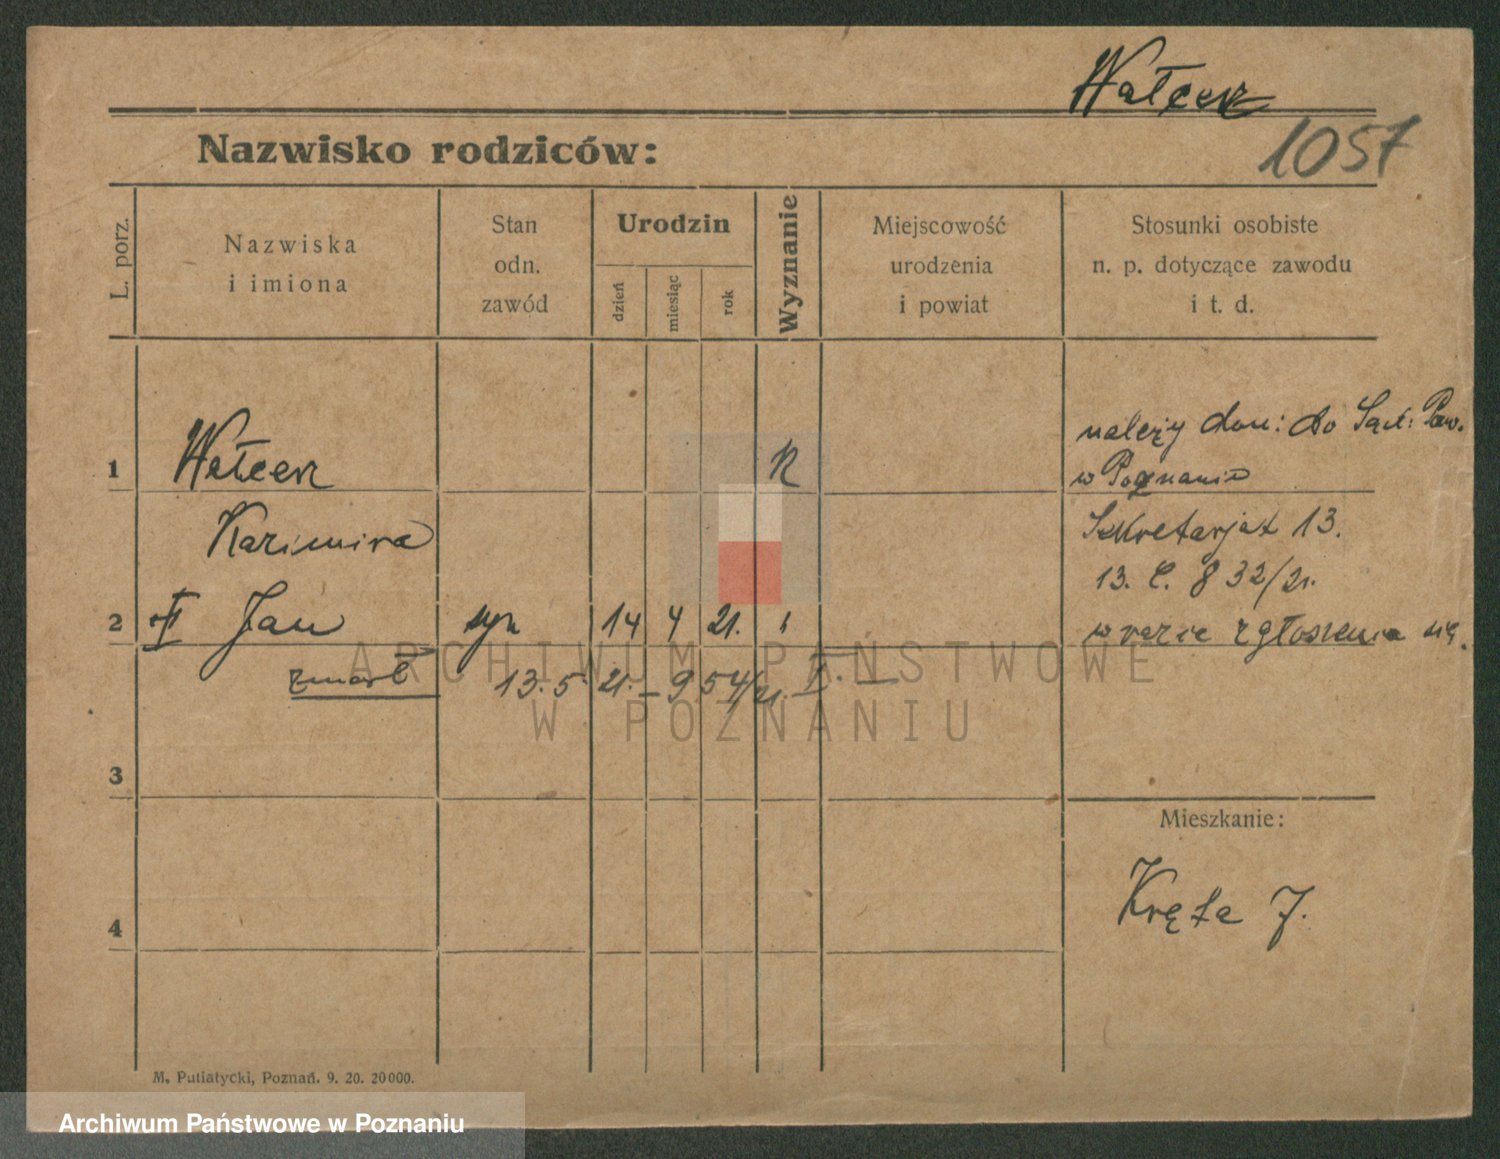 Wałcerz
1057
Nazwisko rodziców:
L. porz.
Nazwiska
i imiona
Stan
odn.
zawód
Urodzin
dzień
miesiąc
rok
Wyznanie
Miejscowość
urodzenia
i powiat
Stosunki osobiste
n. p. dotyczące zawodu
i t. d.
1
Wałcerz
należy don: do Sąd: Pow.
w Poznaniu
Kazimira
Sekretarjat 13.
13. C. 832/21.
2 Jan syn 14 4 21.
w razie zgłoszenia się.
zmarł 13. 5 21. – 954/21.
ARCHIWUM PAŃSTWOWE
W POZNANIU
3
Mieszkanie:
Kręta 7.
4
M. Putiatycki, Poznań. 9. 20. 20000.
Archiwum Państwowe w Poznaniu